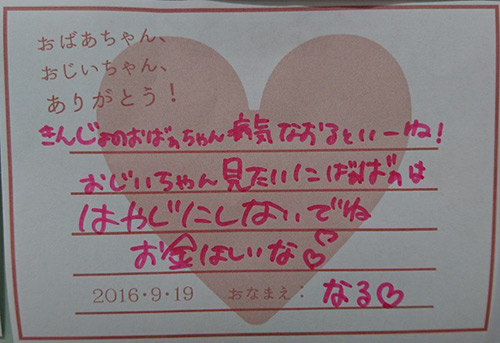 おばあちゃん、
おじいちゃん、
ありがとう！
きんじょのおばぁちゃん病気なおるといーね！
おじいちゃん見たいにばぁばぁは
はやじにしないでね
お金ほしいな♡
2016・9・19 おなまえ： なる♡